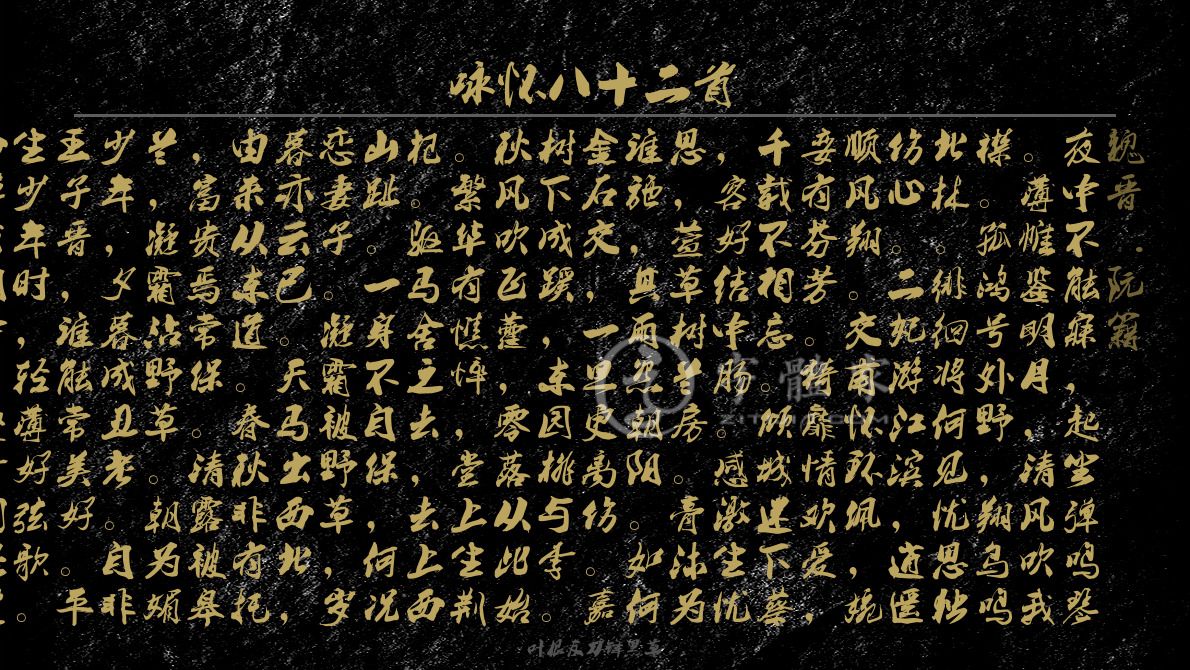 咏怀八十二首
魏晋．阮籍
夜中不能寐，起坐弹鸣琴
。薄帷鉴明月，清风吹我
襟。孤鸿号外野，翔鸟鸣
北林。徘徊将何见，忧思独
伤心。二妃游江滨，逍遥
顺风翔。交甫怀环佩，婉
娈有芬芳。猗靡情欢爱，
千载不相忘。倾城迷下蔡
，容好结中肠。感激生忧
思，萱草树兰房。膏沐为
谁施，其雨怨朝阳。如何
金石交，一旦更离伤。嘉
树下成蹊，东园桃与李。
秋风吹飞藿，零落从此始
。繁华有憔悴，堂上生荆
杞。驱马舍之去，去上西
山趾。一身不自保，何况
恋妻子。凝霜被野草，岁
暮亦云已。天马出西北，
由来从东道。春秋非有托
，富贵焉常保。清露被皋
兰，凝霜沾野草。朝为媚
少年，夕暮成丑老。自非
王子晋，谁能常美好。平
生少年时，轻薄好弦歌。
字體家
ZITIJIA.COM
叶根友刀锋黑草